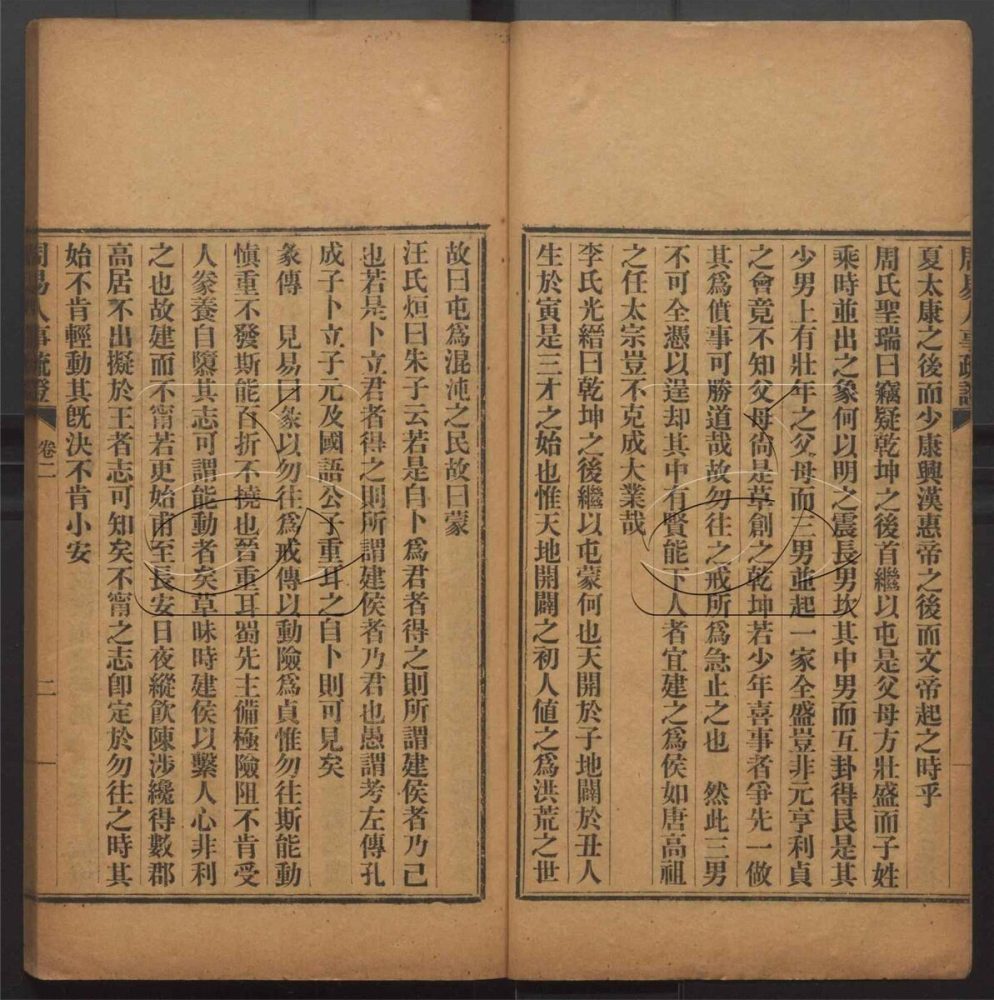 周易人事疏證
夏太康之後而少康興漢惠帝之後而文帝起之時乎
周氏聖瑞曰竊疑乾坤之後首繼以屯是父母方壯盛而子姓
乘時並出之象何以明之震長男坎其中男而互卦得艮是其
少男上有壯年之父母而三男並起一家全盛豈非元亨利貞
之會竟不知父母尙是草創之乾坤若少年喜事者爭先一做
其爲僨事可勝道哉故勿往之戒所爲急止之也　然此三男
不可全憑以逞却其中有賢能下人者宜建之爲侯如唐高祖
之任太宗豈不克成大業哉
李氏光縉曰乾坤之後繼以屯蒙何也天開於子地闢於丑人
生於寅是三才之始也惟天地開闢之初人値之爲洪荒之世
故曰屯爲混沌之民故曰蒙
汪氏烜曰朱子云若是自卜爲君者得之則所謂建侯者乃己
也若是卜立君者得之則所謂建侯者乃君也愚謂考左傳孔
成子卜立子元及國語公子重耳之自卜則可見矣
彖傳　見易曰彖以勿往爲戒傳以動險爲貞惟勿往斯能動
愼重不發斯能百折不撓也晉重耳蜀先主備極險阻不肯受
人豢養自隳其志可謂能動者矣草昧時建侯以繫人心非利
之也故建而不甯若更始甫至長安日夜縱飮陳涉纔得數郡
高居不出擬於王者志可知矣不甯之志卽定於勿往之時其
始不肯輕動其旣決不肯小安
周易人事疏證
卷二
二